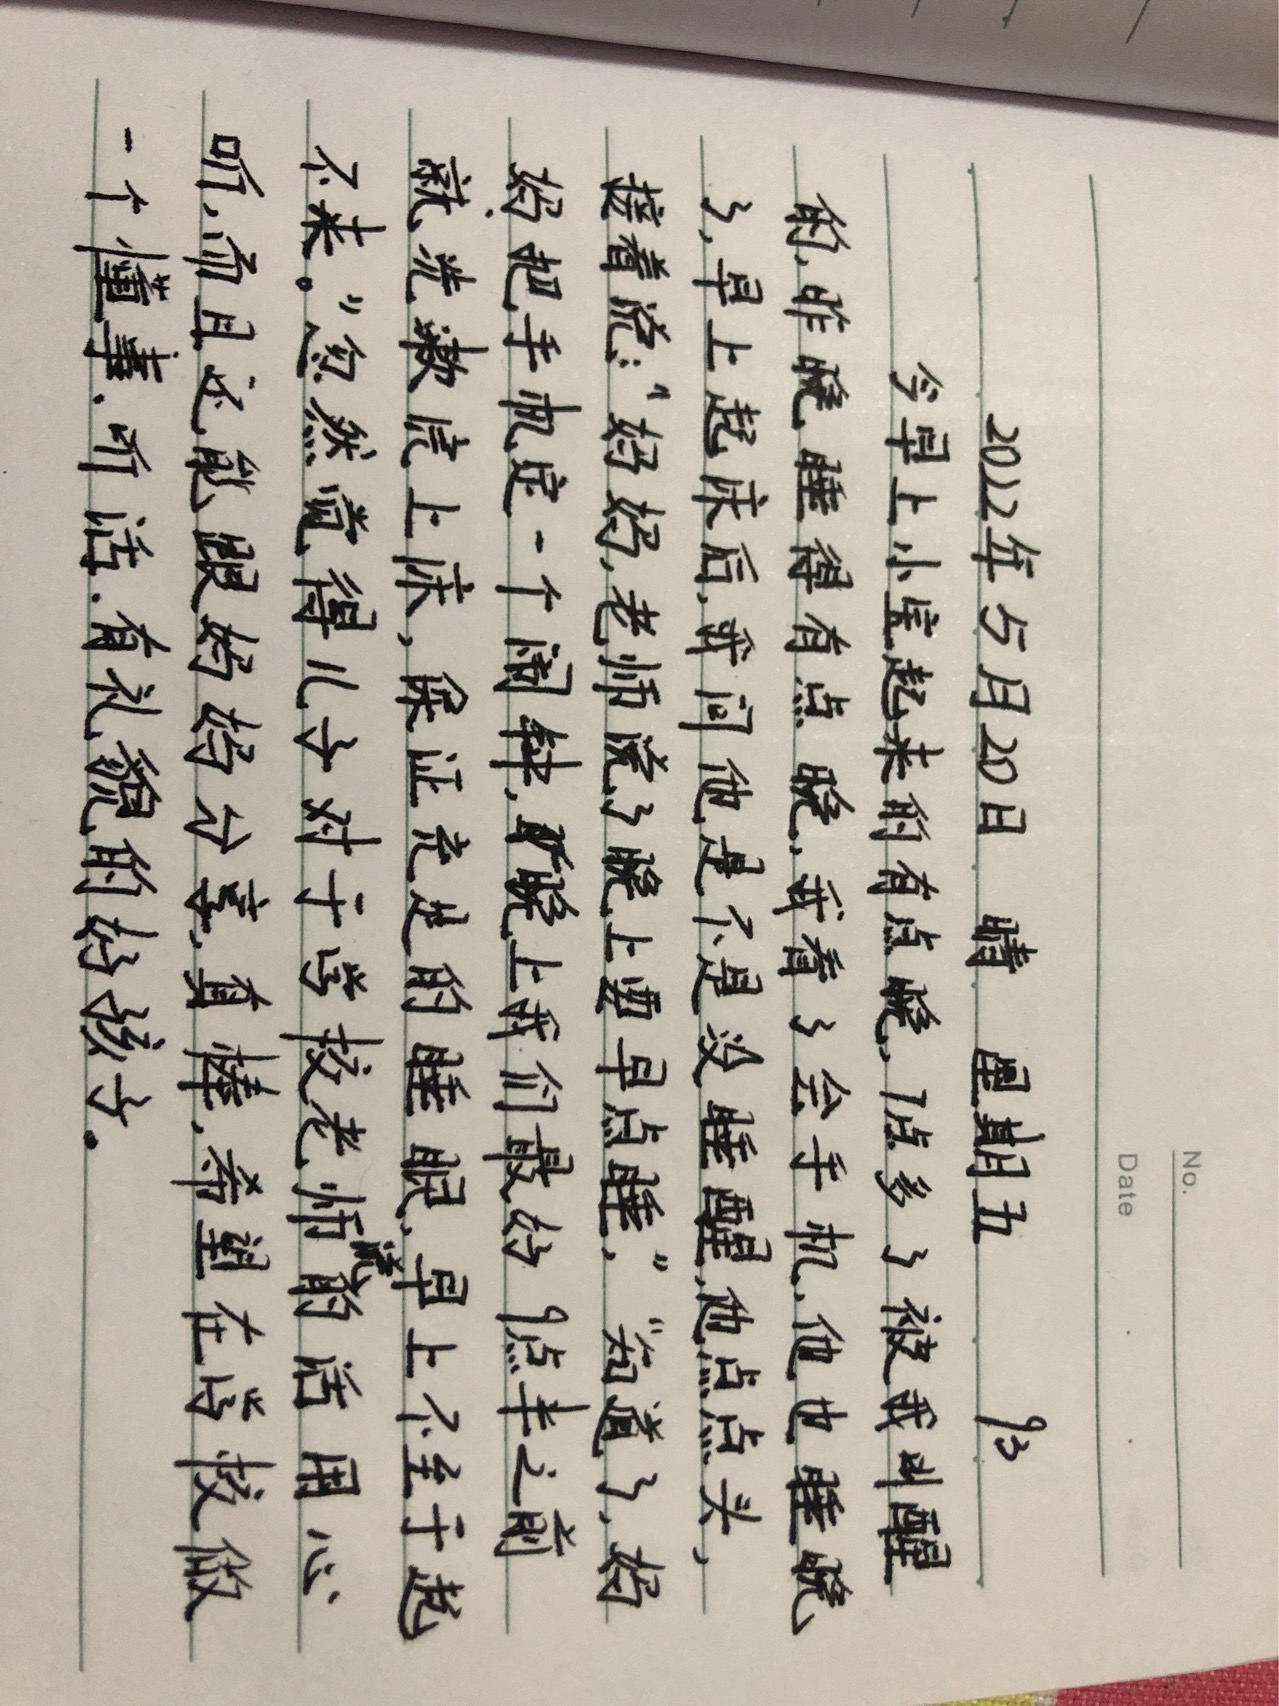 No.
Date
2022年5月20日 晴 星期五 93
今早上小宝起来的有点晚,7点多了被我叫醒
的,昨晚睡得有点晚,我看了会手机,他也睡晚
了,早上起床后,我问他是不是没睡醒,他点点头,
接着说:“妈妈,老师说了晚上要早点睡,”“知道了,妈
妈把手机定一个闹钟,晚上我们最好9点半之前
就洗漱完上床,保证充足的睡眠,早上不至于起
不来。”忽然觉得儿子对于学校老师说的话用心
听,而且还能跟妈妈分享,真棒,希望在学校做
一个懂事、听话、有礼貌的好孩子。